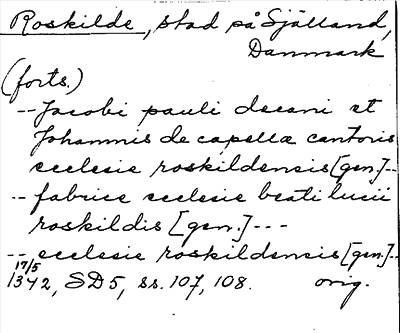 Roskilde, stad på Själland,
Danmark
(forts.)
-- Jacobi pauli decani et
Johannis de capella cantoris
ecclesie roskildensis [gen.] --
-- fabrice ecclesie beati lucii
roskildis [gen.] ---
-- ecclesie roskildensis [gen.] --
17/5
1342, SD5, ss. 107, 108. orig.